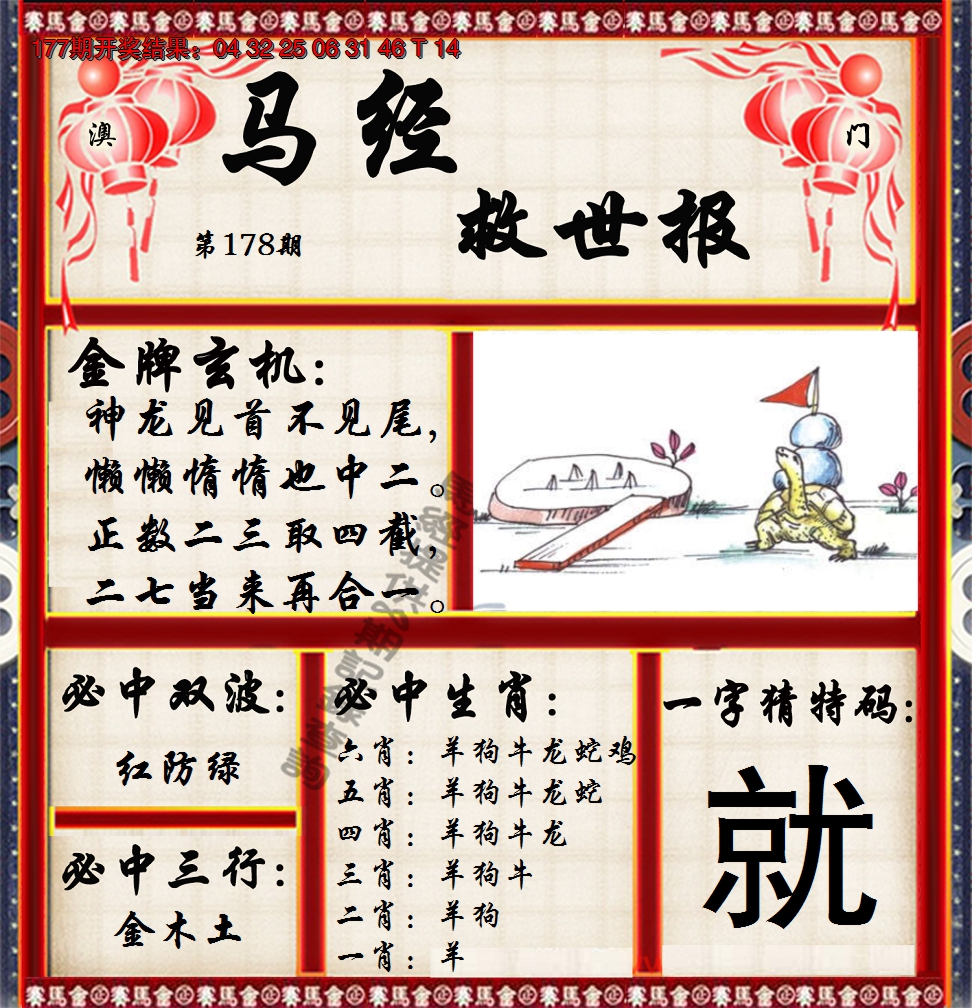 177期开奖结果：04 32 25 06 31 46 T 14
澳
门
马经
救世报
第178期
金牌玄机：
神龙见首不见尾，
懒懒惰惰也中二。
正数二三取四截，
二七当来再合一。
必中双波：
红防绿
必中三行：
金木土
必中生肖：
六肖：羊狗牛龙蛇鸡
五肖：羊狗牛龙蛇
四肖：羊狗牛龙
三肖：羊狗牛
二肖：羊狗
一肖：羊
一字猜特码：
就